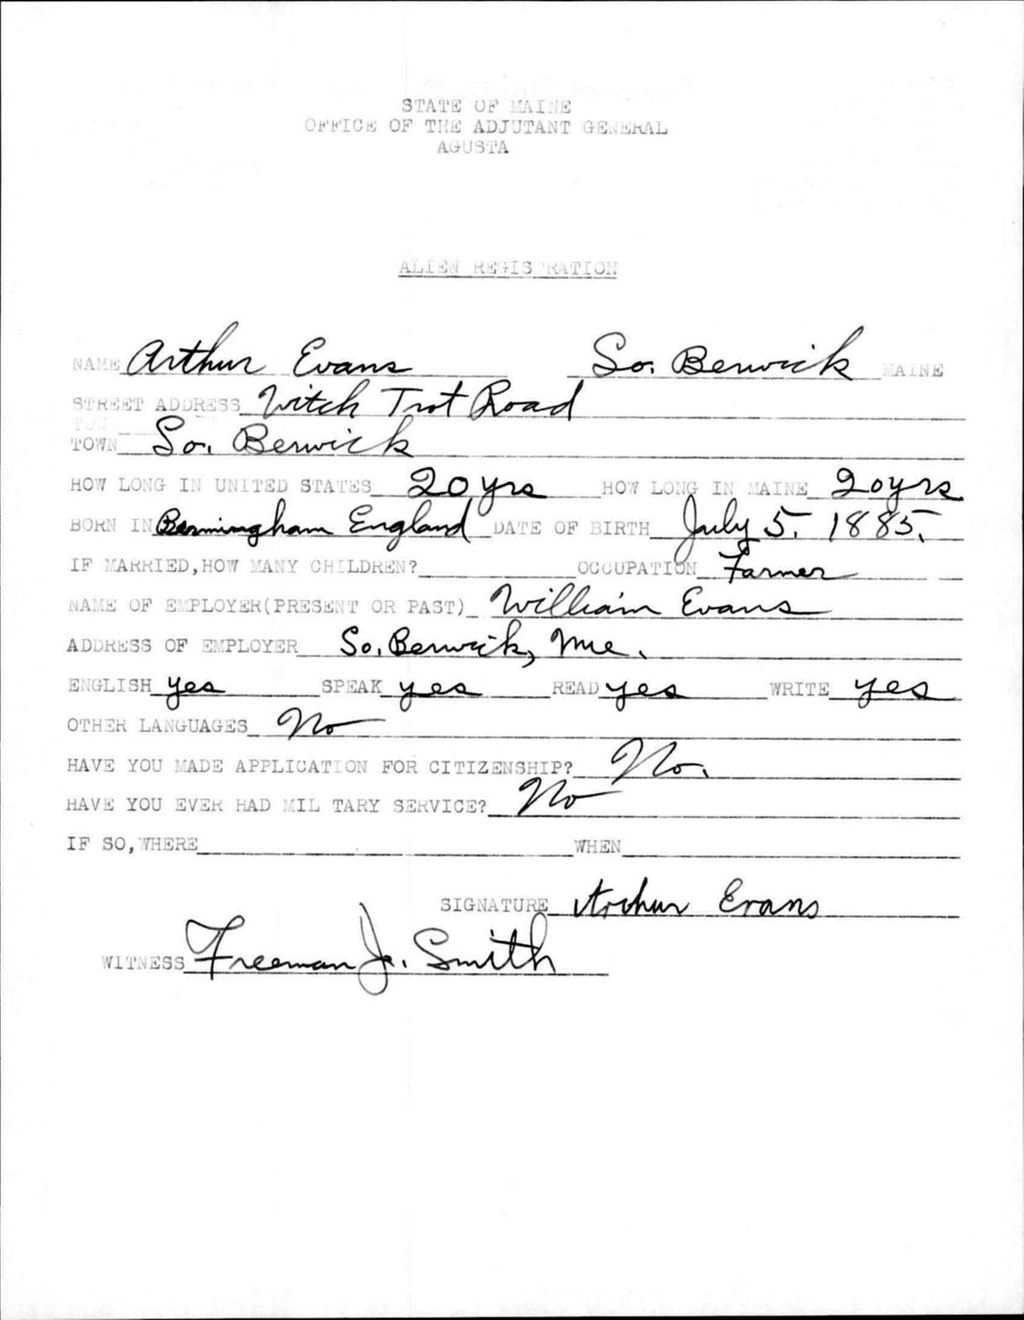 STATE OF MAINE
OFFICE OF THE ADJUTANT GENERAL
AGUSTA
ALIEN REGISTRATION
NAME Arthur Evans So. Berwick MAINE
STREET ADDRESS Witch Trot Road
TOWN So. Berwick
HOW LONG IN UNITED STATES 20 yrs HOW LONG IN MAINE 20 yrs
BORN IN Bermingham England DATE OF BIRTH July 5. 1885.
IF MARRIED, HOW MANY CHILDREN? OCCUPATION Farmer
NAME OF EMPLOYER(PRESENT OR PAST) William Evans
ADDRESS OF EMPLOYER So. Berwick, Me.
ENGLISH yes SPEAK yes READ yes WRITE yes
OTHER LANGUAGES No
HAVE YOU MADE APPLICATION FOR CITIZENSHIP? No.
HAVE YOU EVER HAD MIL TARY SERVICE? No
IF SO, WHERE WHEN
SIGNATURE Arthur Evans
WITNESS Freeman J. Smith